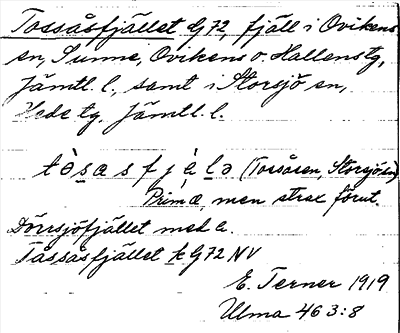 Tossåsfjället kG72, fjäll i Ovikens
sn, Sunne, Ovikens o. Hallens tg,
Jämtl. l., samt i Storsjö sn,
Hede tg, Jämtl. l.
tòsasfjèlə (Tossåsen, Storsjösn)
Prim. æ, men strax förut
Dörrsjöfjället med e.
Tåssåsfjället kG72 NV
E. Terner 1919
Ulma 463:8